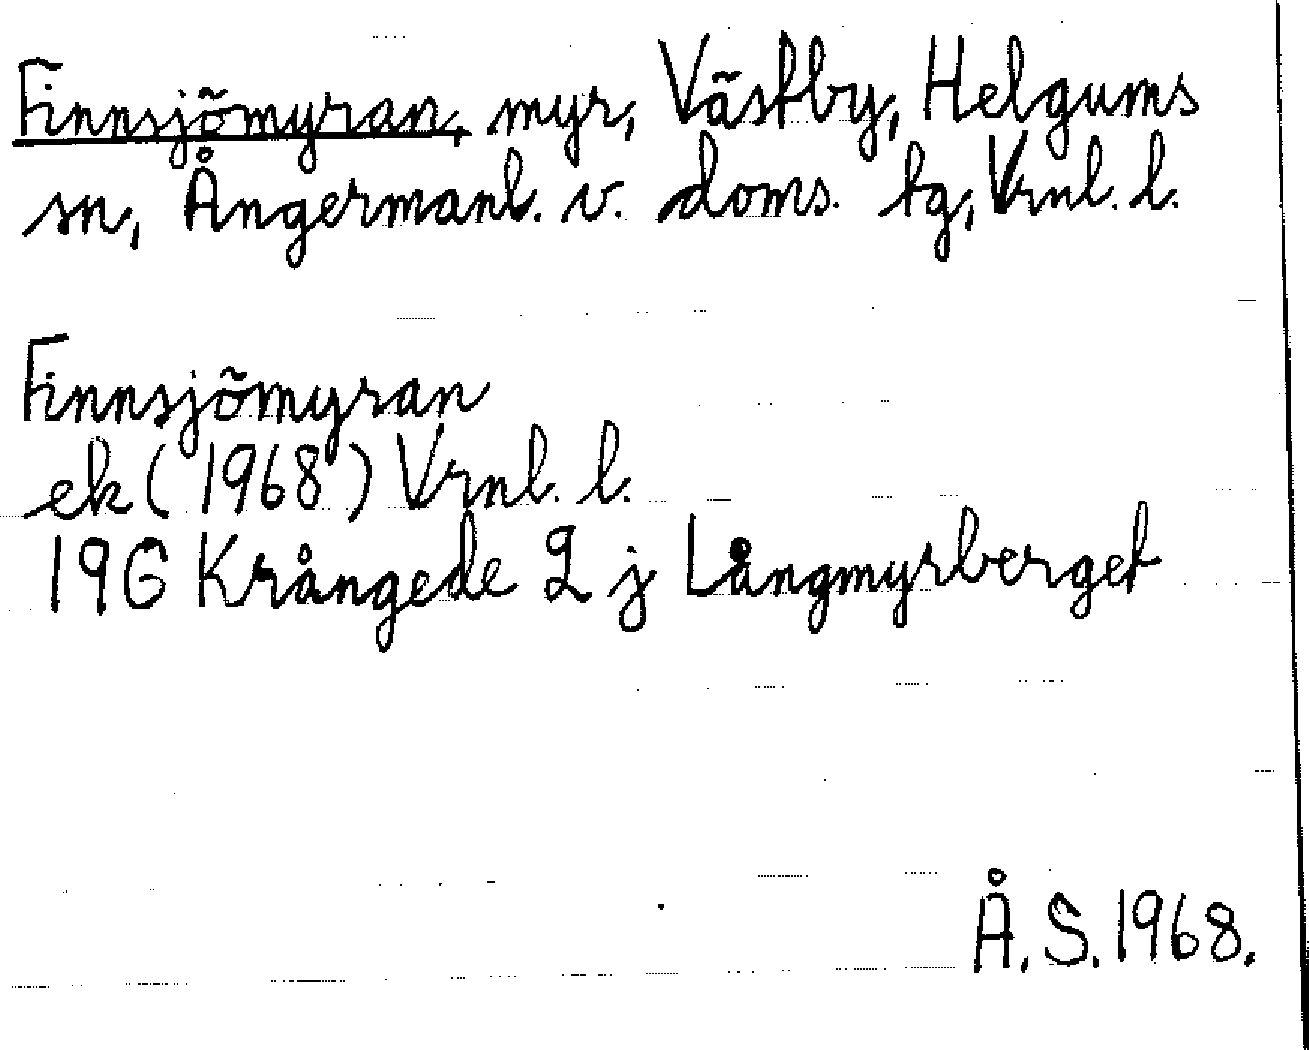 Finnsjömyran, myr, Västby, Helgums
sn, Ångermanl. v. doms. tg, Vrnl. l.
Finnsjömyran
ek (1968) Vrnl. l.
19G Krångede 2 j Långmyrberget
Å. S. 1968.